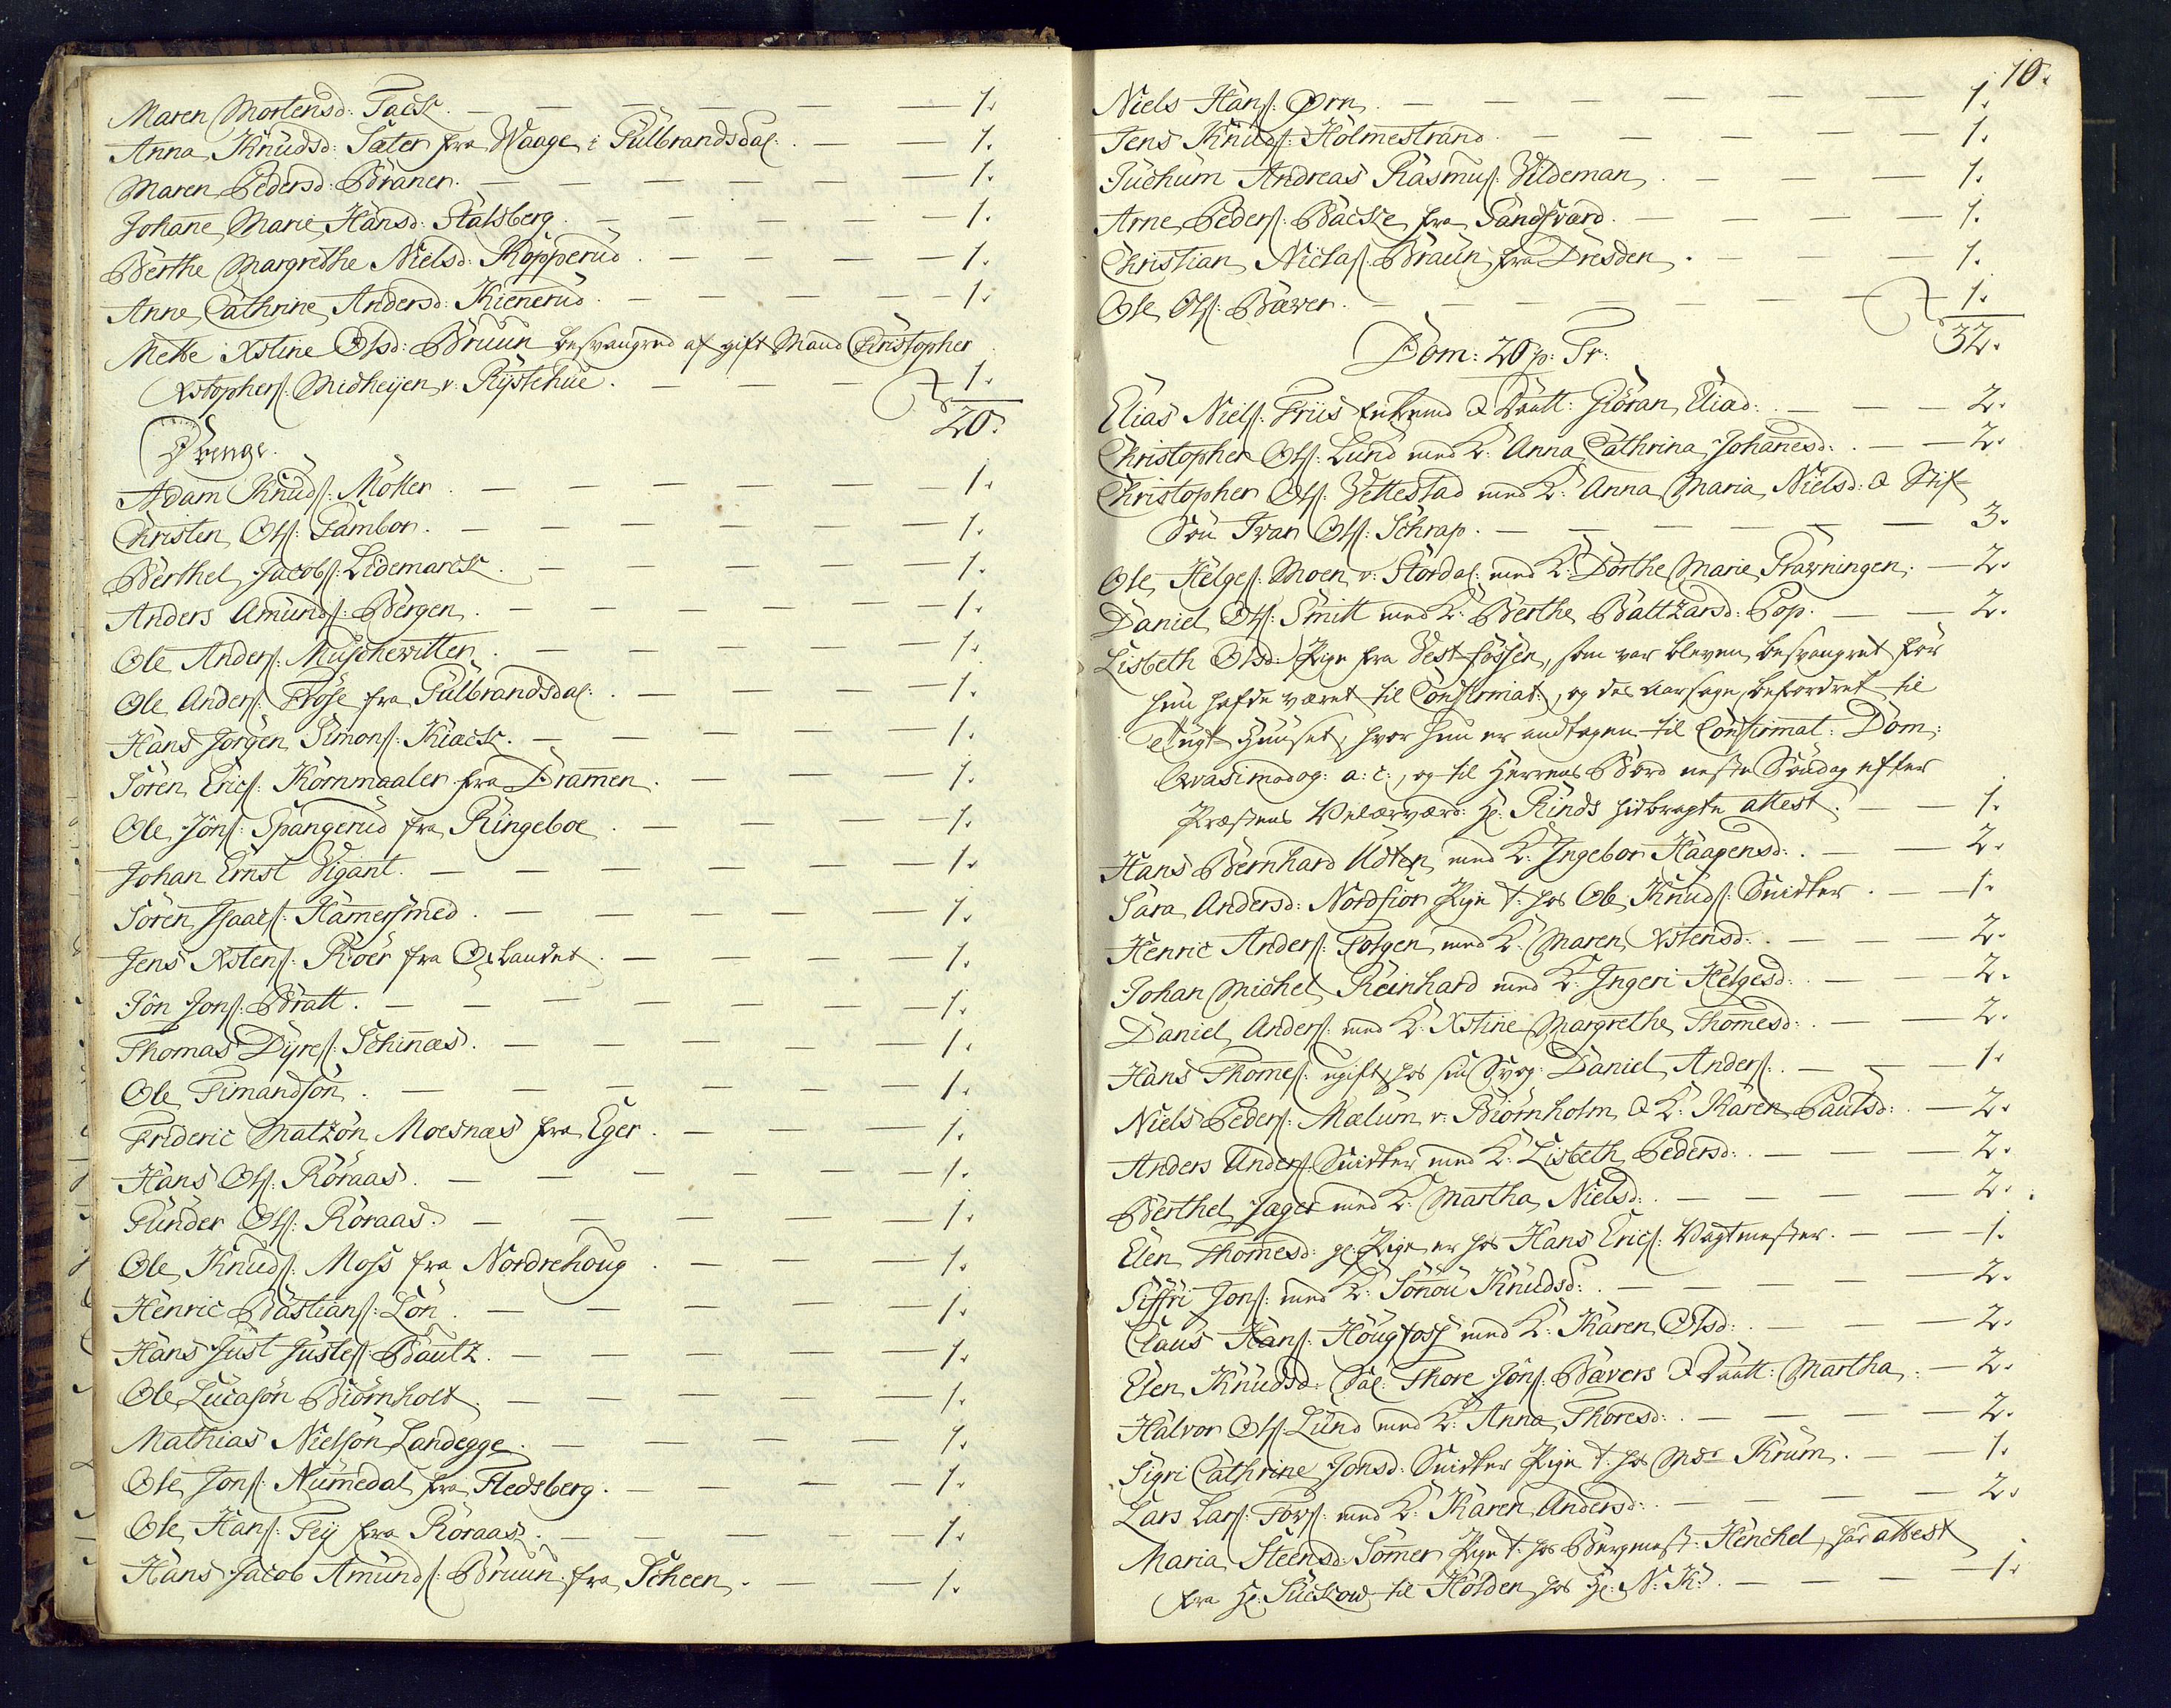 Maren Mortensd: Tack. — 1.
Anna Knudsd: Sæter fra Waage i Gulbrandsdal: — 1.
Maren Pedersd: Braner. — 1.
Johanne Marie Hansd: Stalsberg. — 1.
Berthe Margrethe Nielsd: Kopperud. — 1.
Anne Cathrine Andersd: Kienerud. — 1.
Mette Xstine Olsd: Bruun besvangred af gift Mand Christopher
Xstophers: Midheyen v: Rystehue. — 1.
20.
Drenge.
Adam Knuds: Möller. — 1.
Christen Ols: Tambor. — 1.
Berthel Jacobs: Lidemarck. — 1.
Anders Amunds: Bergen. — 1.
Ole Anders: Muschewitter. — 1.
Ole Anders: Frose fra Gulbrandsdal: — 1.
Hans Jörgen Simons: Kiack. — 1.
Sören Erics: Kornmaaler fra Drammen. — 1.
Ole Jons: Spangerud fra Ringeboe. — 1.
Johan Ernst Vigant. — 1.
Sören Isaacs: Hamersmed. — 1.
Jens Xstens: Roer fra Oplandet. — 1.
Jon Jons: Bratt. — 1.
Thomas Dyres: Schinæs. — 1.
Ole Timandsön. — 1.
Frideric Matzön Moesnæs fra Eger. — 1.
Hans Ols: Röraas. — 1.
Gunder Ols: Röraas. — 1.
Ole Knuds: Moss fra Nordrehoug. — 1.
Henric Bastians: Lön. — 1.
Hans Just Justes: Bautz. — 1.
Ole Lucasön Biörnholt. — 1.
Mathias Nielsön Landegge. — 1.
Ole Jons: Numedal fra Fledsberg. — 1.
Ole Hans: Fey fra Röraas. — 1.
Hans Jacob Amunds: Bruun fra Scheen. — 1.
10.
Niels Hans: Ørn. — 1.
Jens Knuds: Holmestrand. — 1.
Juchum Andreas Rasmus: Vildeman. — 1.
Arne Peders: Backe fra Sandsværd. — 1.
Christian Niclas: Braun fra Dresden. — 1.
Ole Ols: Bæver. — 1.
32.
Dom: 20 p: Tr:
Elias Niels: Friis Enkemand & Daatt: Giöran Eliæd: — 2.
Christopher Ols: Lund med K: Anna Cathrina Johanesd: — 2.
Christopher Ols: Vettestad med K: Anna Maria Nielsd: & Stif-
Sön Ivar Ols: Schrap. — 3.
Ole Helges: Moen v: Stordal: med K: Dorthe Marie Grawningen. — 2.
Daniel Ols: Smitt med K: Berthe Baltzarsd: Pop. — 2.
Lisbeth Olsd: Pige fra Vestfossen, som var bleven besvangret för
hun hafde været til Confirmat:, og des aarsage befordret til
Tugt-Huuset, hvor hun er andtagen til Confirmat: Dom:
Qvasimodog: a: c:, og til Herrens Bord neste Söndag efter
Præstens Velærværd: Hr: Rinds hidbragte attest. — 1.
Hans Bernhard Udten med K: Ingebor Haagensd: — 2.
Sara Andersd: Nordfior Pige t: hos Ole Knuds: Snidker. — 1.
Henric Anders: Folgen med K: Maren Xstensd: — 2.
Johan Michel Reinhard med K: Ingeri Helgesd: — 2.
Daniel Anders: med K: Xstine Margrethe Thomesd: — 2.
Hans Thomes: ugift, hos sin Svog: Daniel Anders: — 1.
Niels Peders: Mælum v: Biörnholm & K: Karen Paulsd: — 2.
Anders Anders: Snidker med K: Lisbeth Pedersd: — 2.
Berthel Jæger med K: Martha Nielsd: — 2.
Elen Thomesd: gl: Pige er hos Hans Erics: Vagtmester. — 1.
Siffri Jons: med K: Sönou Knudsd: — 2.
Claus Hans: Hougfoss med K: Karen Olsd: — 2.
Elen Knudsd: Sal: Thore Jons: Bævers & Daatt: Martha. — 2.
Halvor Ols: Lund med K: Anna Thoresd: — 2.
Sigri Cathrine Jonsd: Snidker Pige t: hos Msr Krum. — 1.
Lars Lars: Fors: med K: Karen Andersd: — 2.
Maria Steensd: Somer Pige t: hos Bergmest: Henchel, har attest
fra Hr: Suckow til Holden hos Hr: N: K: — 1.